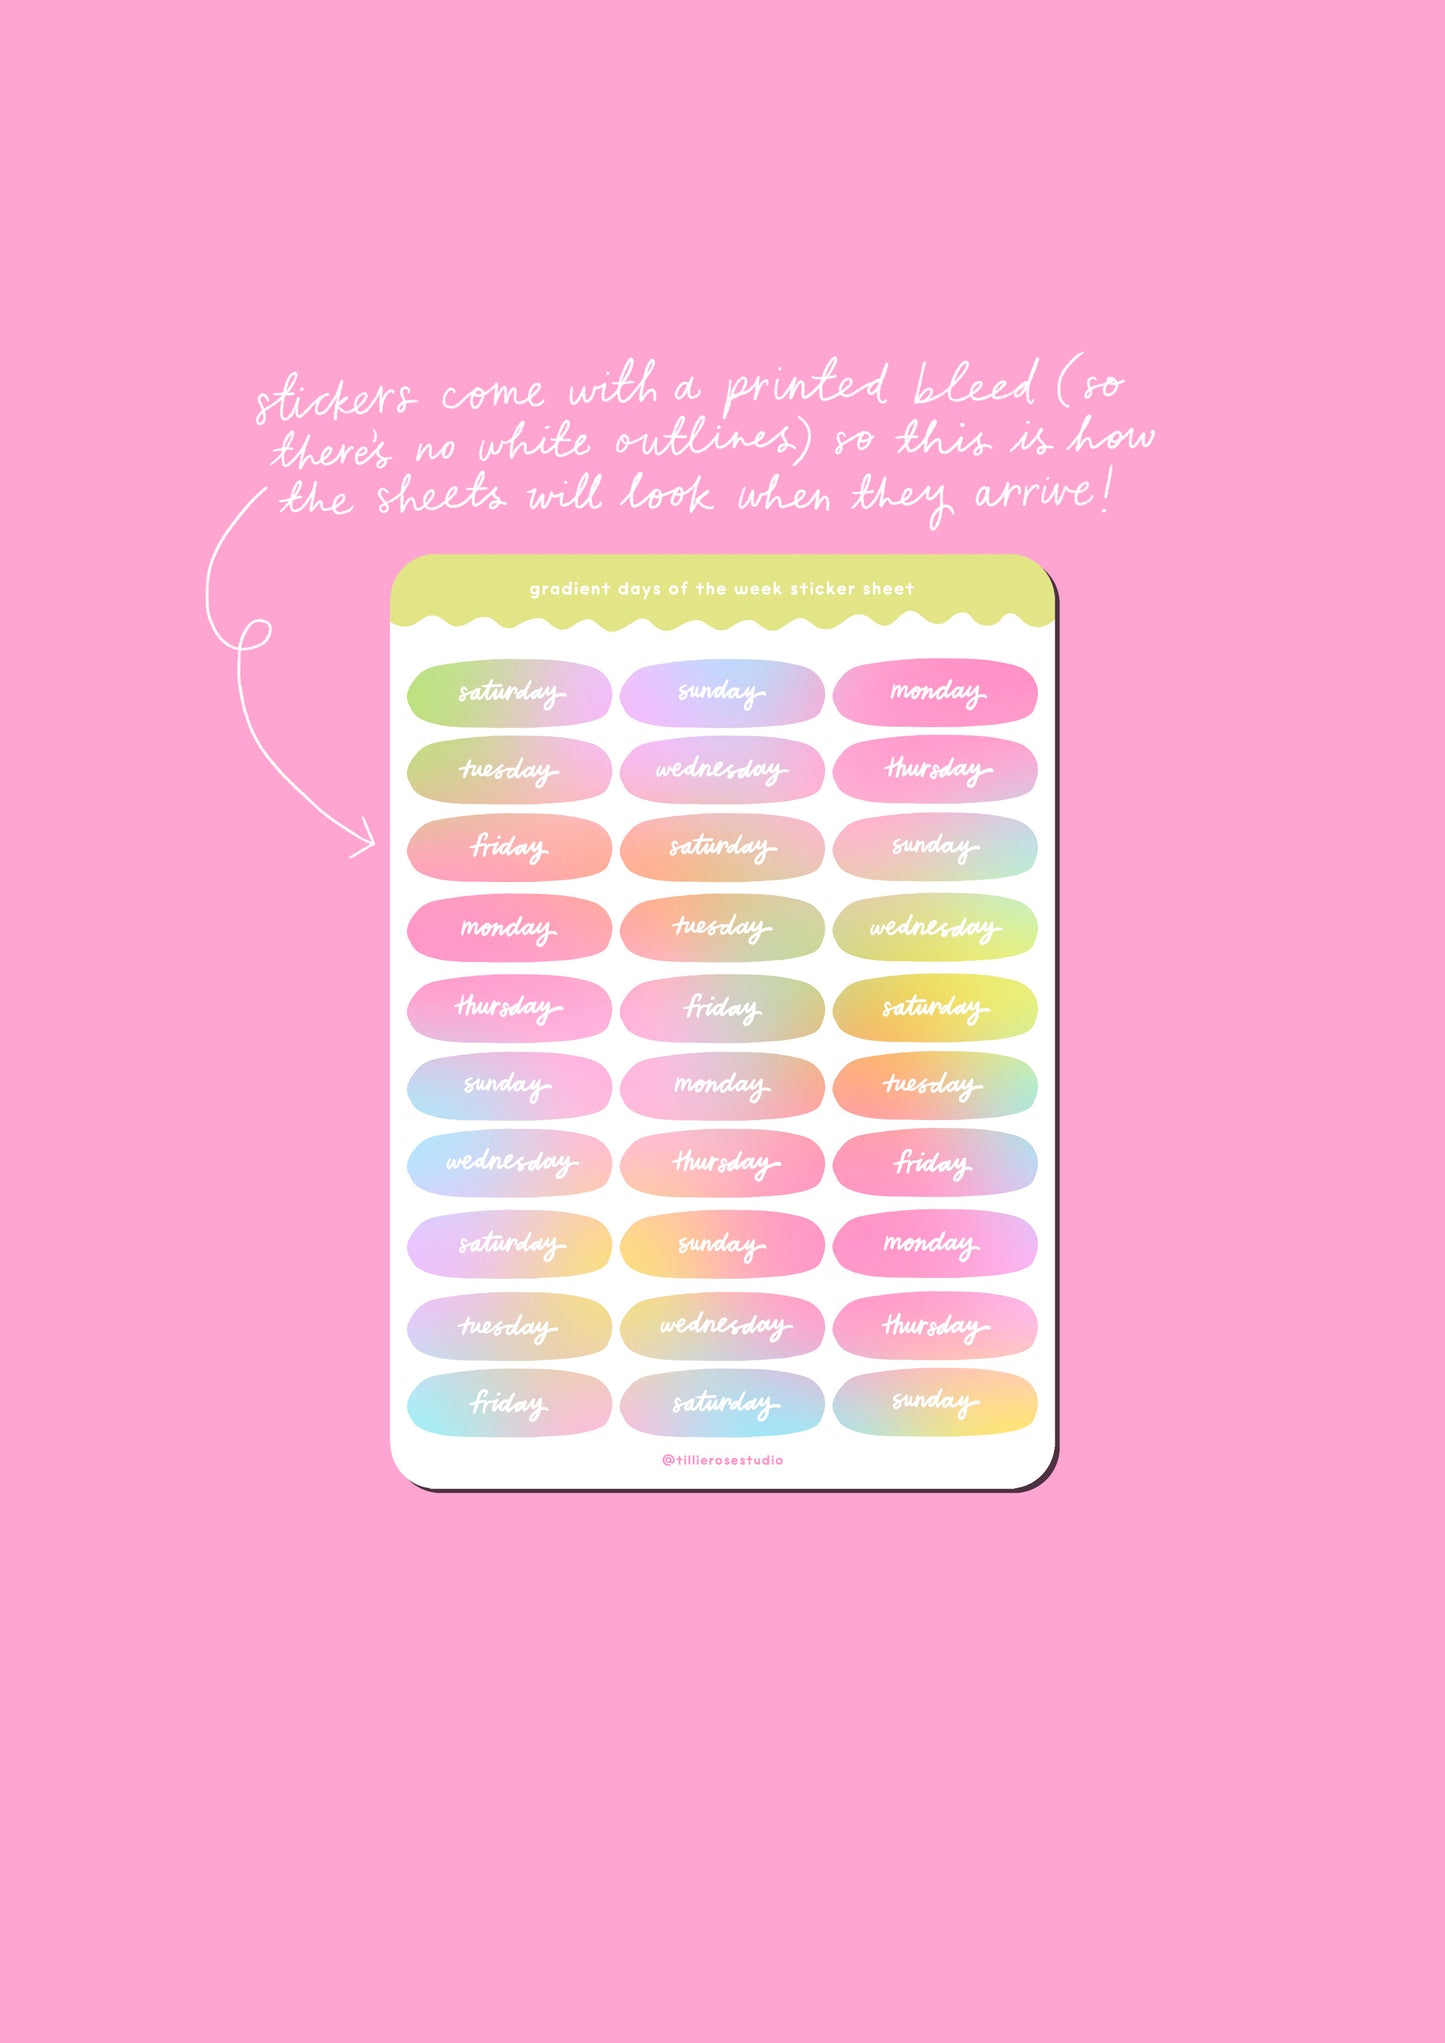 stickers come with a printed bleed (so
there's no white outlines) so this is how
the sheets will look when they arrive!
gradient days of the week sticker sheet
saturday sunday monday
tuesday wednesday thursday
friday saturday sunday
monday tuesday wednesday
thursday friday saturday
sunday monday tuesday
wednesday thursday friday
saturday sunday monday
tuesday wednesday thursday
friday saturday sunday
@tillierosestudio